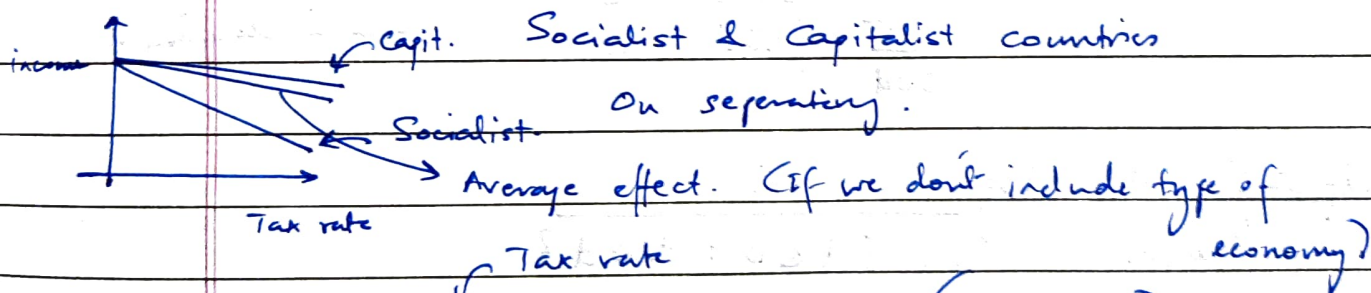 Capit. Socialist & Capitalist countries
income
On seperating.
Socialist.
Average effect. (If we don't include type of
economy)
Tax rate
Tax rate